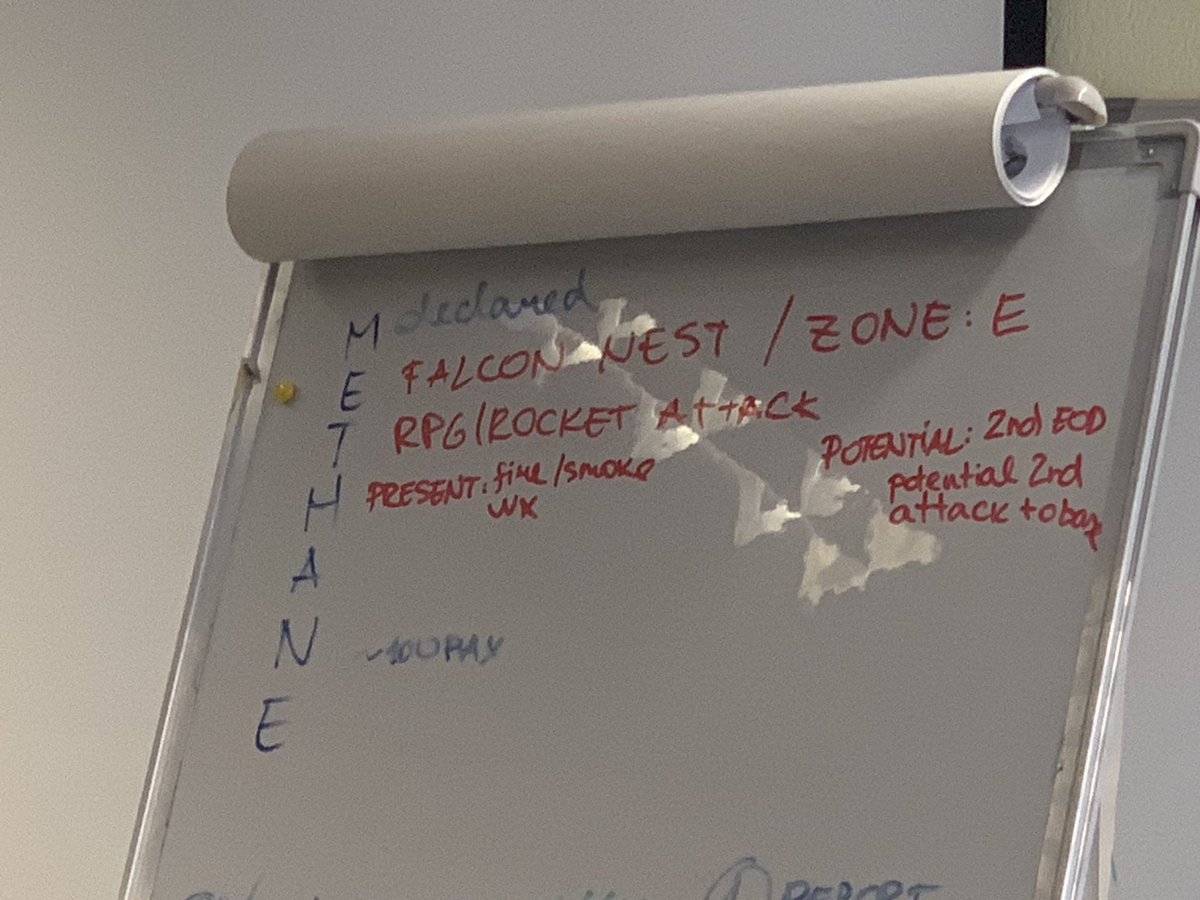 M declared
E FALCON NEST / ZONE: E
T RPG/ROCKET ATTACK
H PRESENT: fire/smoke POTENTIAL: 2nd EOD
WX potential 2nd
attack to base
A
N ~100 PAX
E
① REPORT